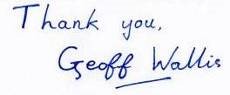 Thank you,
Geoff Wallis